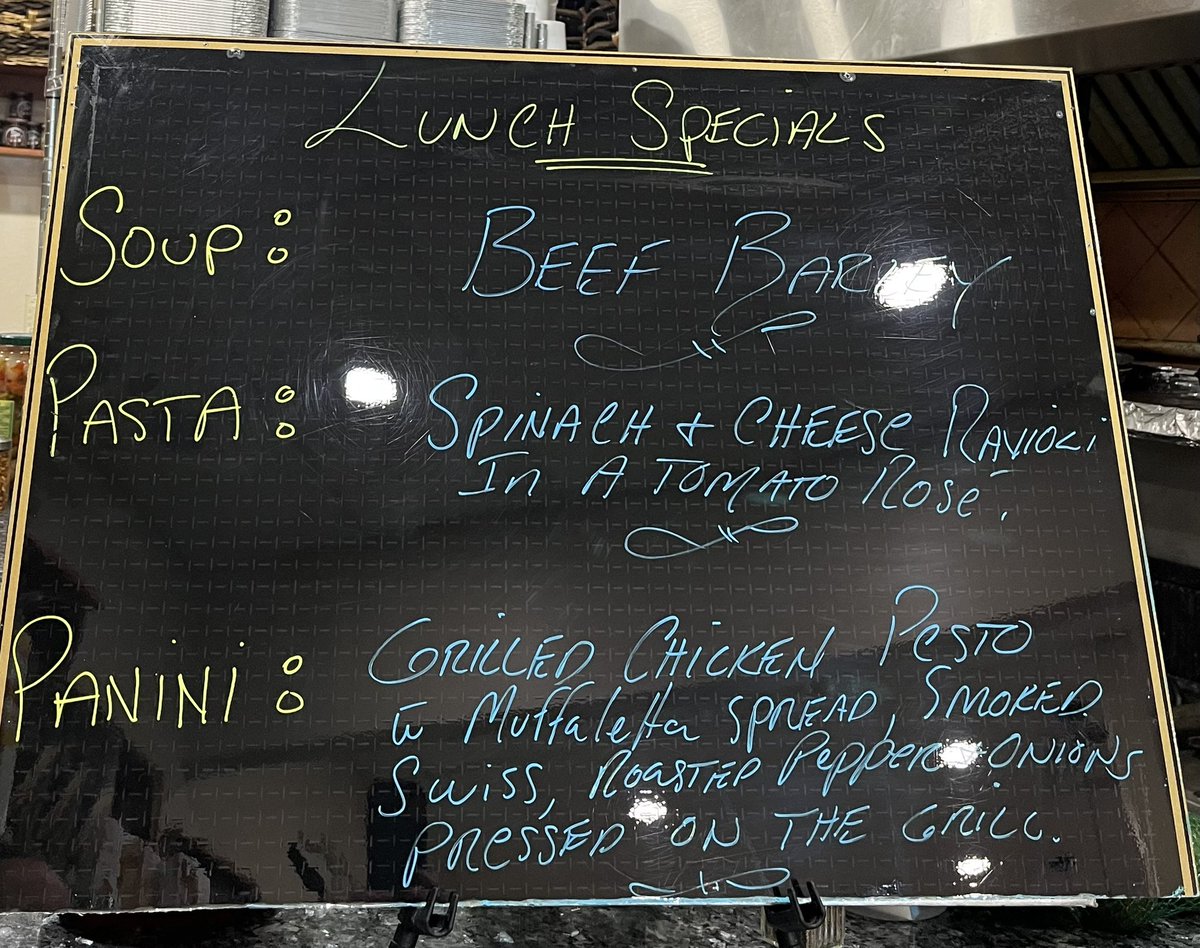 Lunch Specials
Soup: Beef Barley
Pasta: Spinach + Cheese Ravioli
In A Tomato Rosé.
Panini: Grilled Chicken Pesto
w Muffaletta Spread, Smoked
Swiss, Roasted Pepper + Onions
Pressed on the Grill.